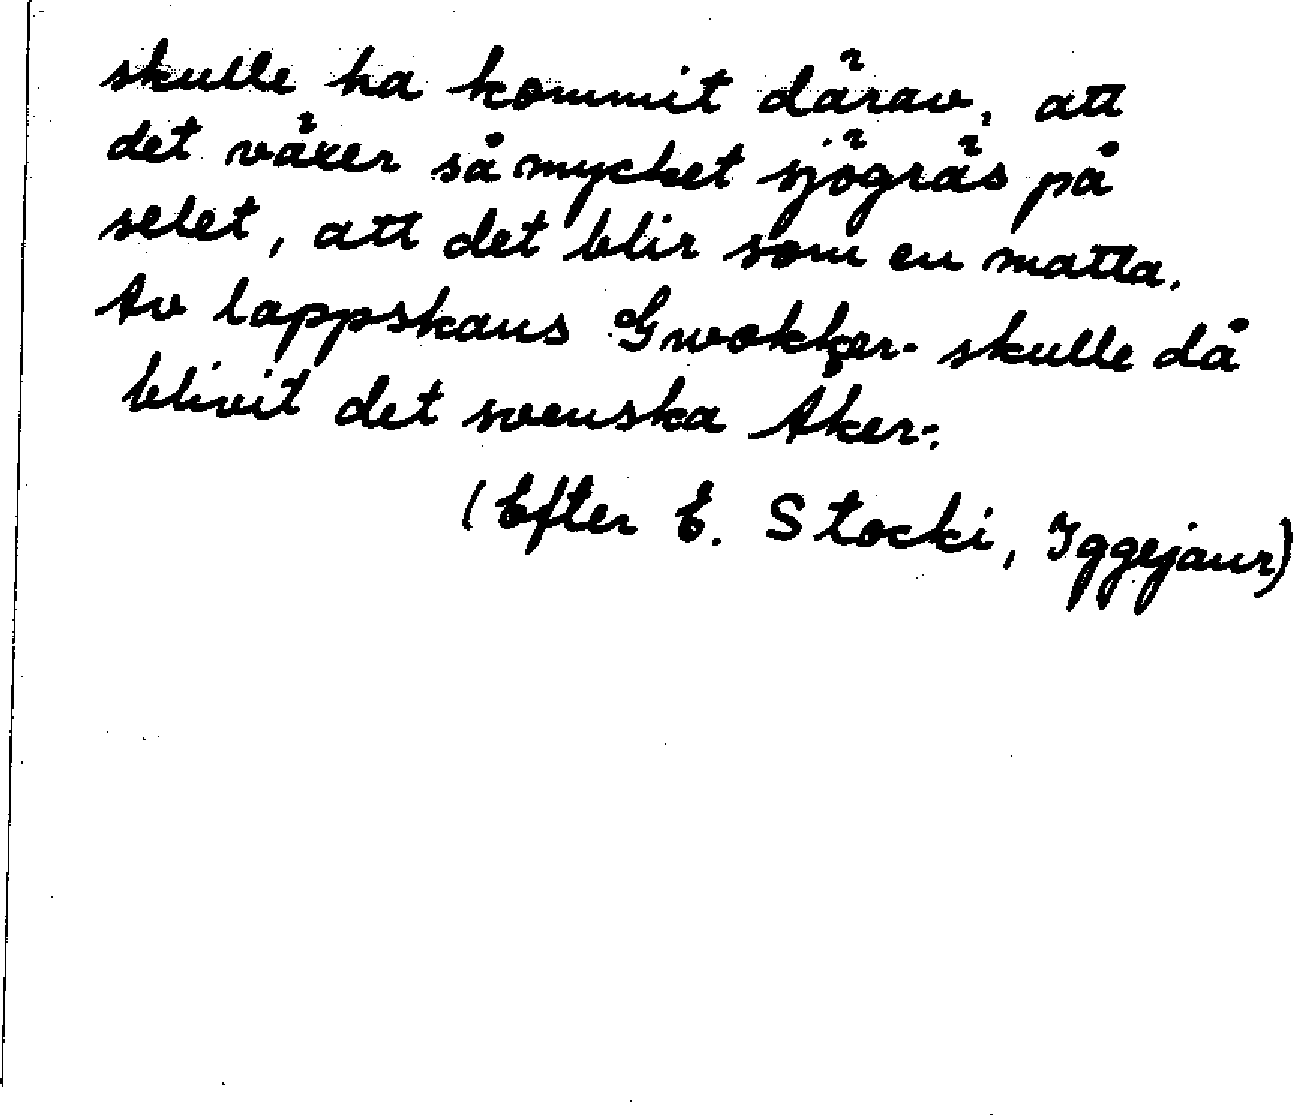 skulle ha kommit därav, att
det växer så mycket sjögräs på
selet, att det blir som en matta.
Av lappskans Gwokker- skulle då
blivit det svenska Aker-.
(Efter E. Stocki, Iggejaur)